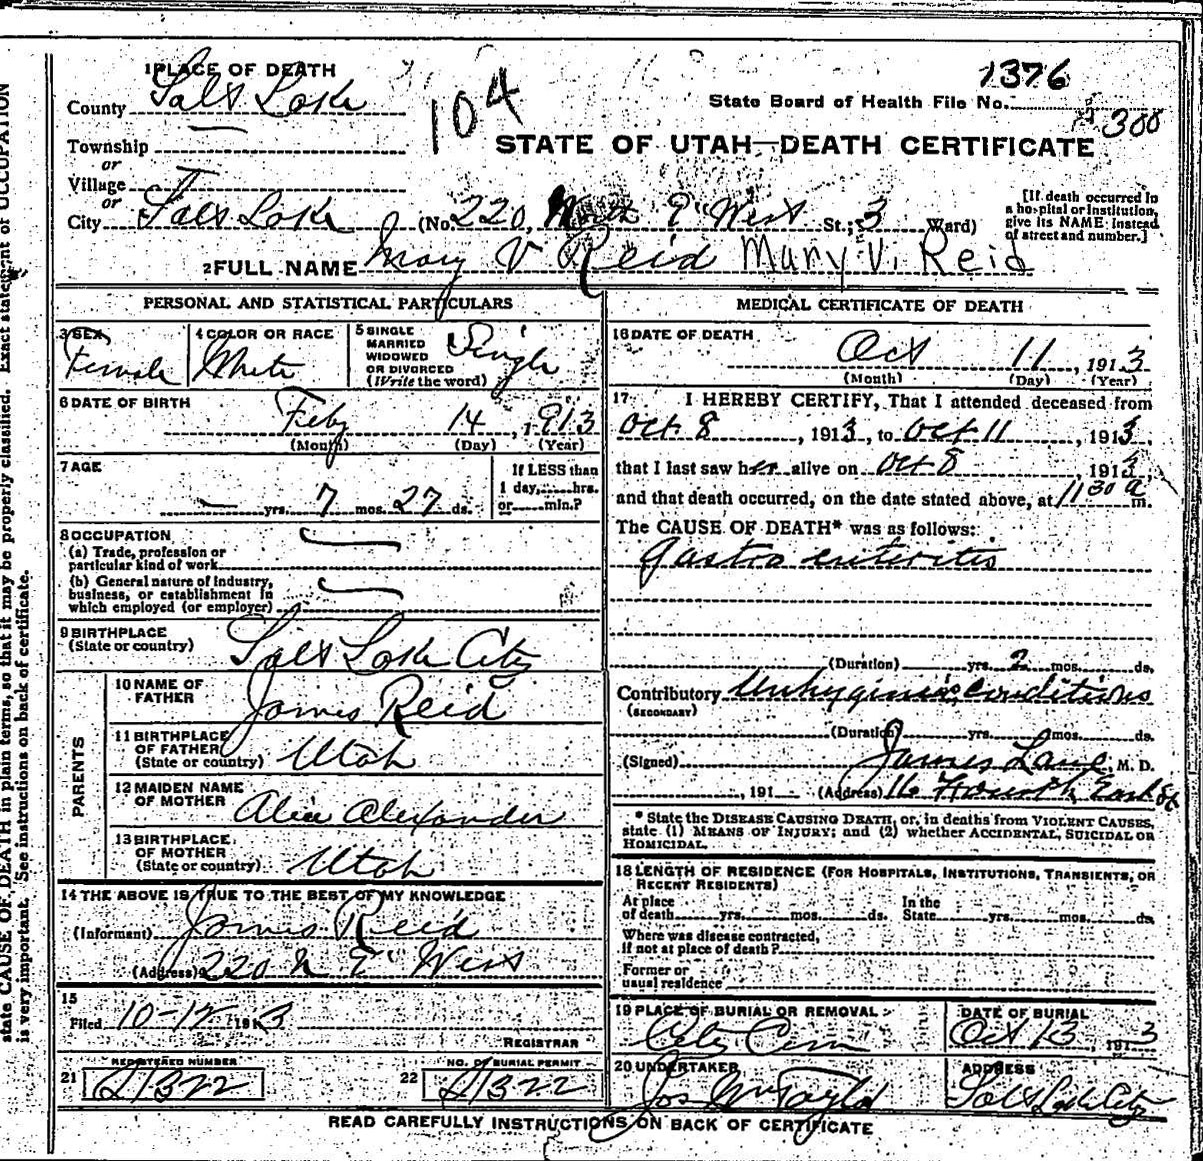 1 PLACE OF DEATH
1376
County Salt Lake
104
State Board of Health File No.
300
Township
STATE OF UTAH—DEATH CERTIFICATE
or
Village
or
City Salt Lake (No. 220, North West St.; 3 Ward)
[If death occurred in a hospital or institution, give its NAME instead of street and number.]
2 FULL NAME Mary V Reid Mary V. Reid
PERSONAL AND STATISTICAL PARTICULARS
3 SEX Female
4 COLOR OR RACE White
5 SINGLE MARRIED WIDOWED OR DIVORCED (Write the word) Single
6 DATE OF BIRTH
Feby 14, 1913
(Month) (Day) (Year)
7 AGE
If LESS than 1 day, hrs. or min.?
— yrs. 7 mos. 27 ds.
8 OCCUPATION
(a) Trade, profession or particular kind of work
(b) General nature of industry, business, or establishment in which employed (or employer)
9 BIRTHPLACE (State or country) Salt Lake City
PARENTS
10 NAME OF FATHER James Reid
11 BIRTHPLACE OF FATHER (State or country) Utah
12 MAIDEN NAME OF MOTHER Alice Alexander
13 BIRTHPLACE OF MOTHER (State or country) Utah
14 THE ABOVE IS TRUE TO THE BEST OF MY KNOWLEDGE
(Informant) James Reid
(Address) 220 N West
15
Filed 10-12, 1913
REGISTRAR
21 REGISTERED NUMBER
22 NO. OF BURIAL PERMIT
MEDICAL CERTIFICATE OF DEATH
16 DATE OF DEATH
Oct 11, 1913
(Month) (Day) (Year)
17 I HEREBY CERTIFY, That I attended deceased from
Oct 8, 1913, to Oct 11, 1913,
that I last saw her alive on Oct 8, 1913,
and that death occurred, on the date stated above, at 11 30 a m.
The CAUSE OF DEATH* was as follows:
Gastro enteritis
(Duration) yrs. 2 mos. ds.
Contributory Unhygienic conditions
(SECONDARY)
(Duration) yrs. mos. ds.
(Signed) James Lane, M. D.
, 191 (Address) 16 Fourth East St
* State the DISEASE CAUSING DEATH, or, in deaths from VIOLENT CAUSES,
state (1) MEANS OF INJURY; and (2) whether ACCIDENTAL, SUICIDAL OR
HOMICIDAL.
18 LENGTH OF RESIDENCE (FOR HOSPITALS, INSTITUTIONS, TRANSIENTS, OR
RECENT RESIDENTS)
At place of death yrs. mos. ds. In the State yrs. mos. ds.
Where was disease contracted,
if not at place of death?
Former or
usual residence
19 PLACE OF BURIAL OR REMOVAL City Cem
DATE OF BURIAL Oct 13, 1913
20 UNDERTAKER Jos Wm Taylor
ADDRESS Salt Lake City
READ CAREFULLY INSTRUCTIONS ON BACK OF CERTIFICATE
state CAUSE OF DEATH in plain terms, so that it may be properly classified. Exact statement of OCCUPATION
is very important. See instructions on back of certificate.